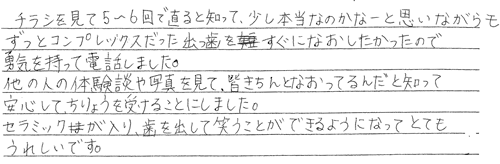 チラシを見て5～6回で直ると知って、少し本当なのかなーと思いながらも
ずっとコンプレックスだった出っ歯をすぐになおしたかったので
勇気を持って電話しました。
他の人の体験談や写真を見て、皆きちんとなおってるんだと知って
安心して、ちりょうを受けることにしました。
セラミックが入り、歯を出して笑うことができるようになってとても
うれしいです。